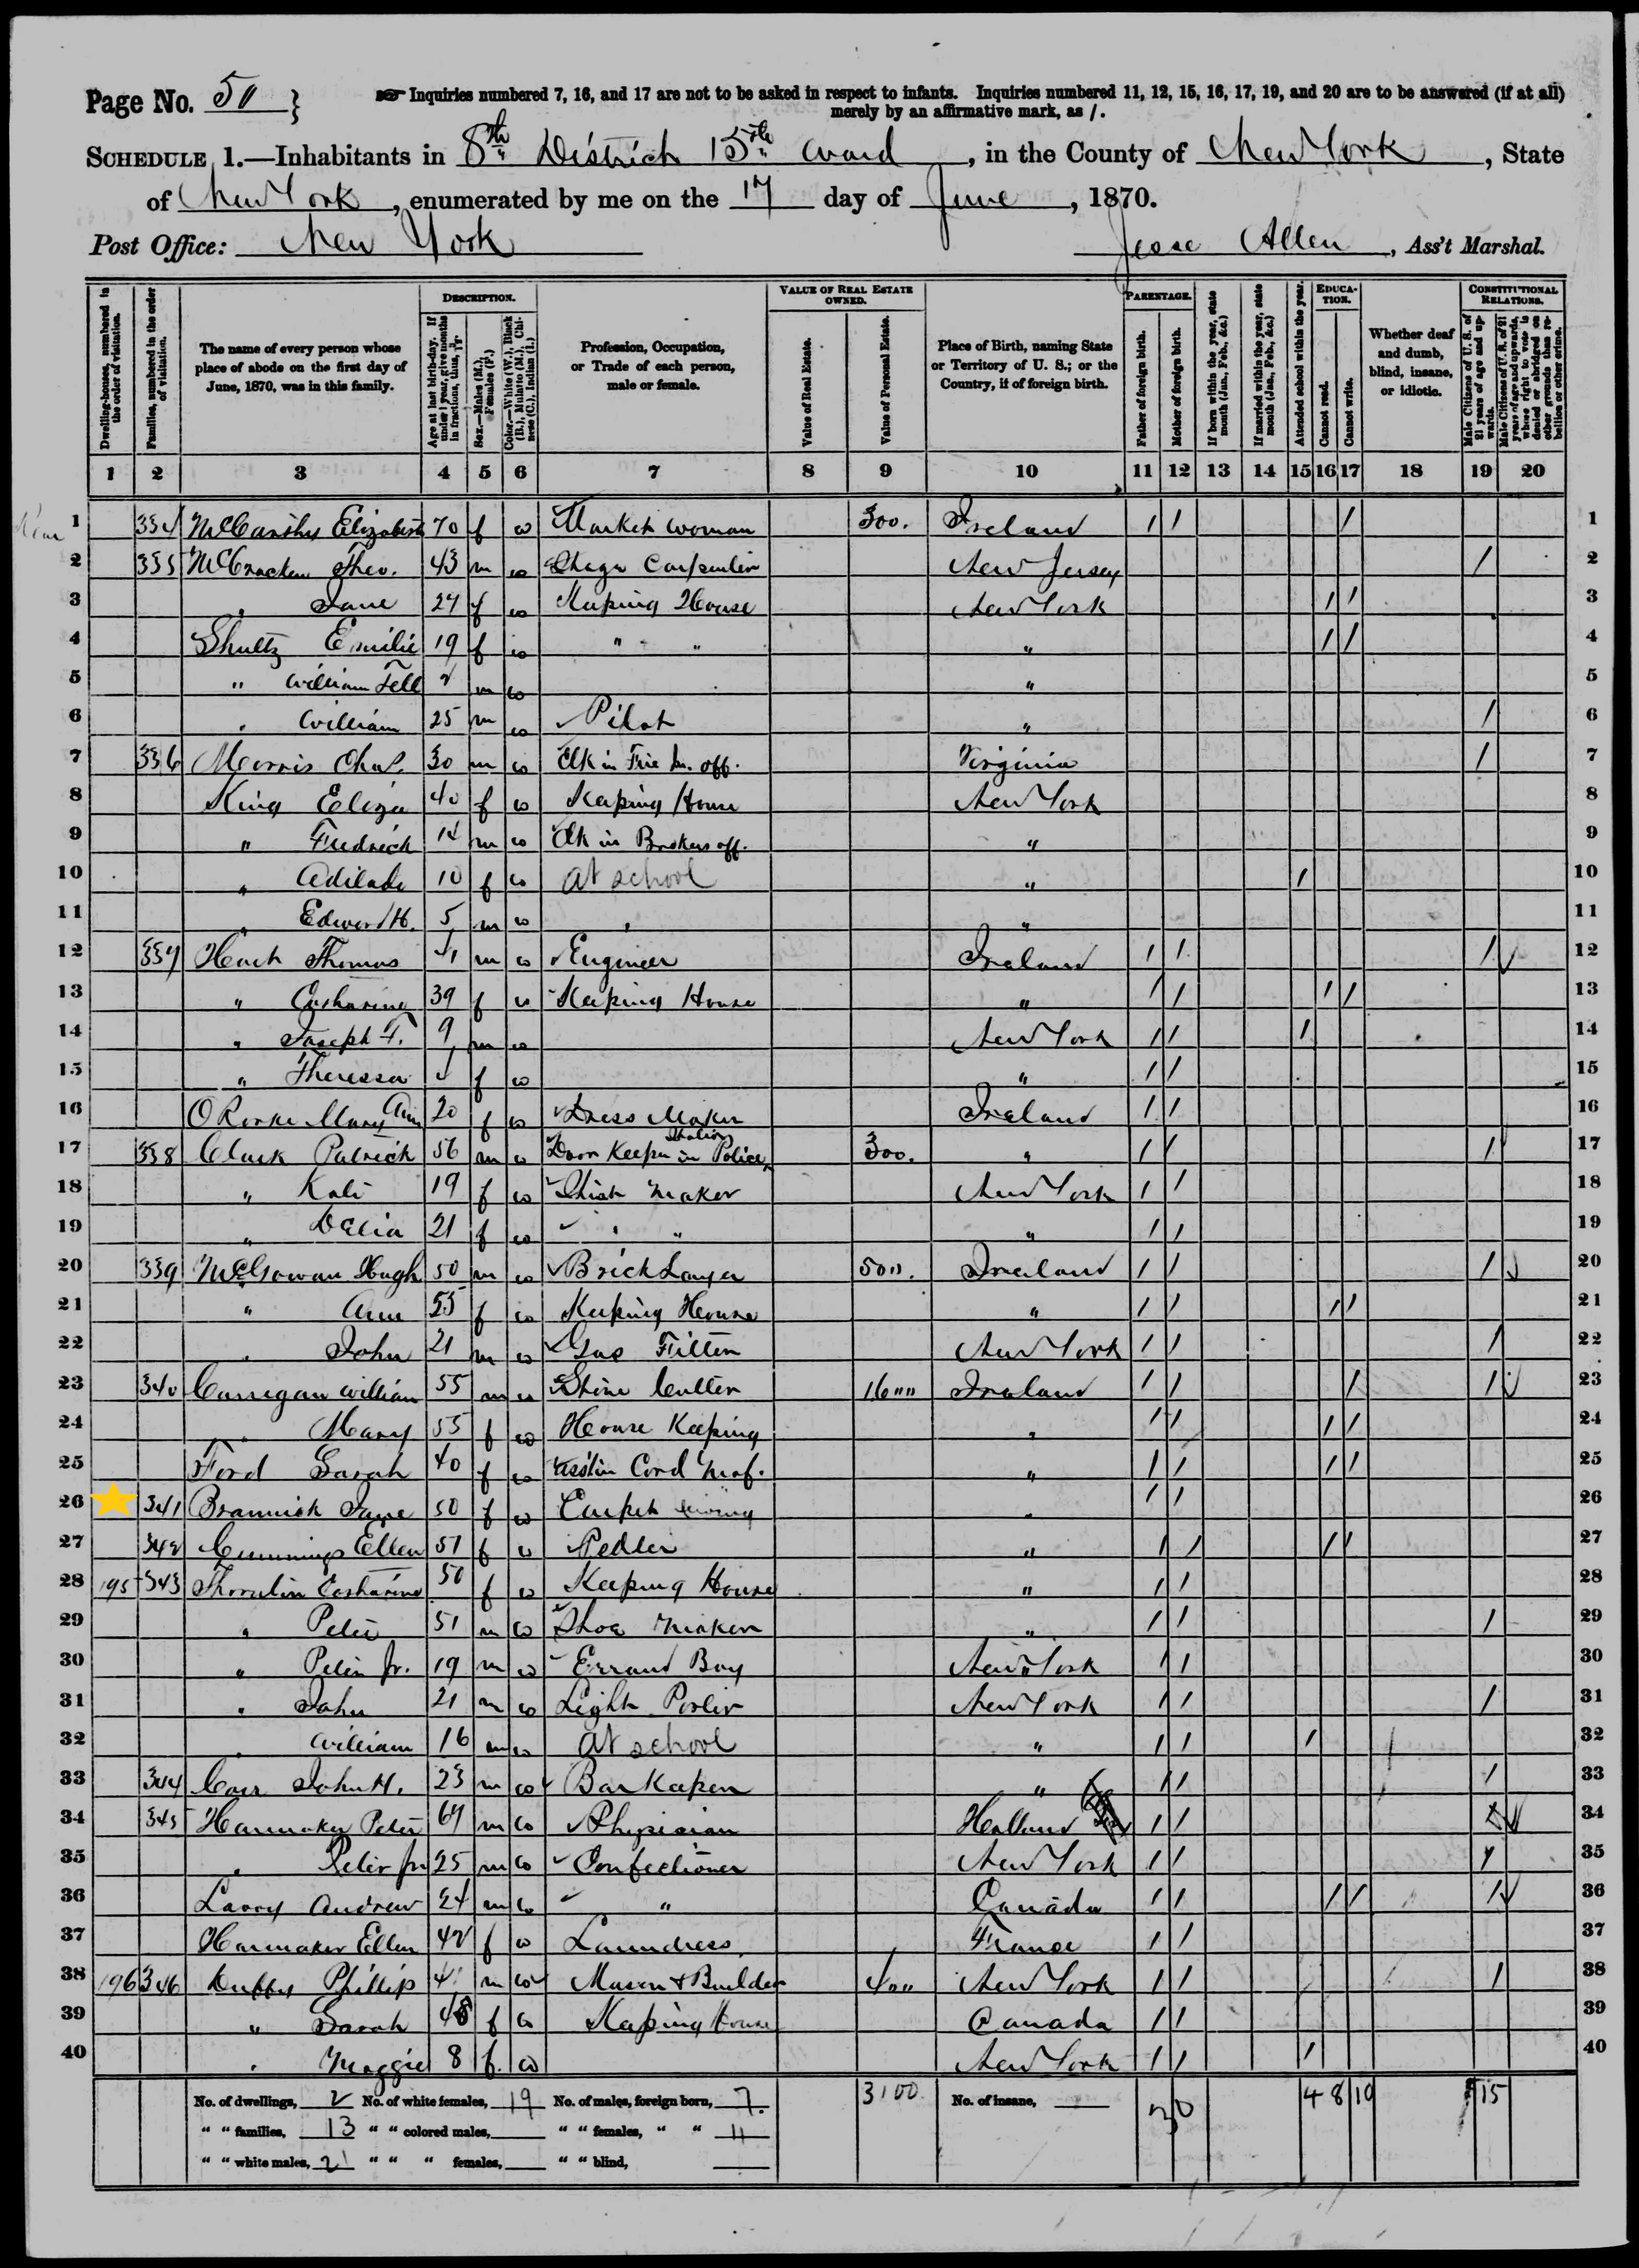 Page No. 50 } Inquiries numbered 7, 16, and 17 are not to be asked in respect to infants. Inquiries numbered 11, 12, 15, 16, 17, 19, and 20 are to be answered (if at all)
merely by an affirmative mark, as /.
SCHEDULE 1.—Inhabitants in 8th District 15th Ward, in the County of New York, State
of New York, enumerated by me on the 17 day of June, 1870.
Post Office: New York Jesse Allen, Ass't Marshal.
Dwelling-houses, numbered in the order of visitation.
Families, numbered in the order of visitation.
The name of every person whose place of abode on the first day of June, 1870, was in this family.
DESCRIPTION.
Age at last birth-day. If under 1 year, give months in fractions, thus,
Sex.—Males (M.), Females (F.)
Color.—White (W.), Black (B.), Mulatto (M.), Chinese (C.), Indian (I.)
Profession, Occupation, or Trade of each person, male or female.
VALUE OF REAL ESTATE OWNED.
Value of Real Estate.
Value of Personal Estate.
Place of Birth, naming State or Territory of U. S.; or the Country, if of foreign birth.
PARENTAGE.
Father of foreign birth.
Mother of foreign birth.
If born within the year, state month (Jan., Feb., &c.)
If married within the year, state month (Jan., Feb., &c.)
Attended school within the year.
EDUCATION.
Cannot read.
Cannot write.
Whether deaf and dumb, blind, insane, or idiotic.
CONSTITUTIONAL RELATIONS.
Male Citizens of U. S. of 21 years of age and upwards.
Male Citizens of U. S. of 21 years of age and upwards, whose right to vote is denied or abridged on other grounds than rebellion or other crime.
1 2 3 4 5 6 7 8 9 10 11 12 13 14 15 16 17 18 19 20
1 334 McCarthy Elizabeth 70 f w Market Woman 300. Ireland / / / 1
2 335 McCracken Theo. 43 m w Carpenter New Jersey / 2
3 Jane 24 f w Keeping House New York / / 3
4 Shultz Emilie 19 f w " " " / / 4
5 " William Tell 2 m w " 5
6 William 25 m w Pilot " / 6
7 336 Morris Chas. 30 m w Clk in Fire In. off. Virginia / 7
8 King Eliza 40 f w Keeping House New York 8
9 " Fredrick 14 m w Clk in Brokers off. " 9
10 " Adilade 10 f w at school " / 10
11 " Edward H. 5 m w " 11
12 337 Thomas 41 m w Engineer Ireland / / / 12
13 " Catharine 39 f w Keeping House " / / / / 13
14 " Joseph F. 9 m w New York / / / 14
15 " Theressa f w " / / 15
16 ORorke Mary Ann 20 f w Dress Maker Ireland / / 16
17 338 Clark Patrick 56 m w Door Keeper in Police Station 300. " / / / 17
18 " Kate 19 f w Shirt Maker New York / / 18
19 " Delia 21 f w " " " / / 19
20 339 McGowan Hugh 50 m w Brick Layer 500. Ireland / / / 20
21 " Ann 55 f w Keeping House " / / / / 21
22 John 21 m w Gas Fitter New York / / / 22
23 340 Carrigan William 55 m w Stone Cutter 1600 Ireland / / / / 23
24 Mary 55 f w House Keeping " / / / / 24
25 Ford Sarah 40 f w Cord Maf. " / / / / 25
26 341 Brannick Jane 50 f w Carpet sewing " / / 26
27 342 Cummings Ellen 51 f w Pedler " / / / / 27
28 195 343 Catharine 50 f w Keeping House " / / 28
29 " Peter 51 m w Shoe Maker " / / / 29
30 " Peter Jr. 19 m w Errand Boy New York / / 30
31 " John 21 m w Light Porter New York / / / 31
32 William 16 m w at school " / / / 32
33 344 Carr John H. 23 m w Bar Keeper " / / / 33
34 345 Hanmaker Peter 67 m w Physician Holland / / 34
35 " Peter Jr 25 m w Confectioner New York / / / 35
36 Andrew 24 m w " Canada / / / / / 36
37 Hanmaker Ellen 42 f w Laundress France / / 37
38 196 346 Duffy Phillip m w Mason & Builder 400 New York / / / 38
39 " Sarah 48 f w Keeping House Canada / / 39
40 " Maggie 8 f w New York / / / 40
No. of dwellings, 2 No. of white females, 19 No. of males, foreign born, 7. 3100 No. of insane, 30 4 8 10 15
" " families, 13 " " colored males, " " females, " " 11
" " white males, 21 " " " females, " " blind,